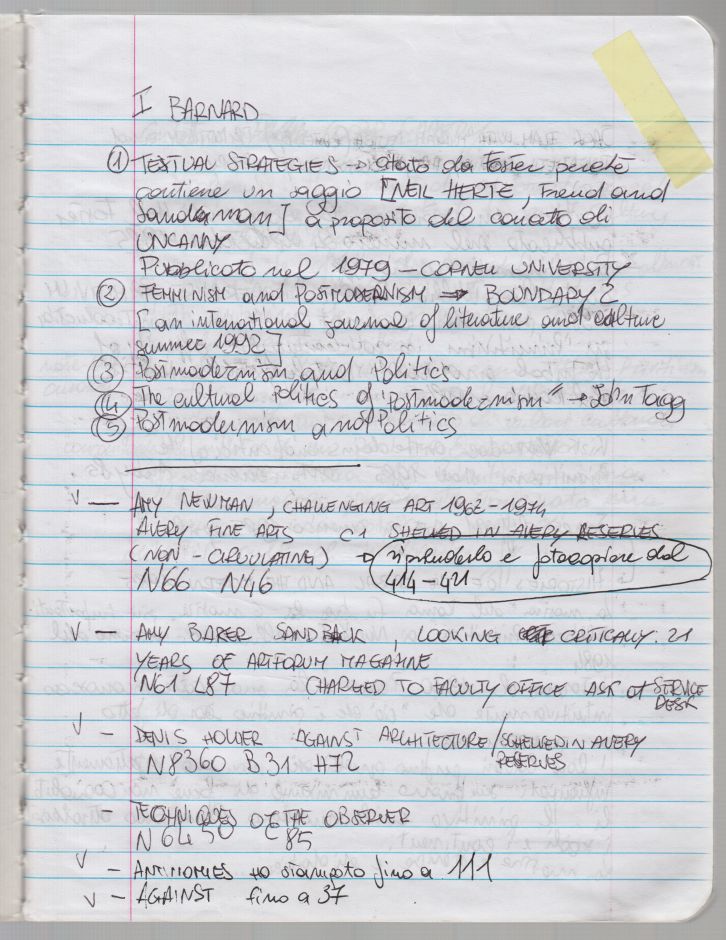 I BARNARD
① TEXTUAL STRATEGIES → citato da Foster perché
contiene un saggio [NEIL HERTE, Freud and
Sanderman] a proposito del concetto di
UNCANNY
Pubblicato nel 1979 - CORNELL UNIVERSITY
② FEMMINISM and POSTMODERNISM ⇒ BOUNDARY 2
[an international journal of literature and culture
summer 1992]
③ Postmodernism and Politics
④ The cultural Politics of "Postmodernism" → John Tagg
⑤ Postmodernism and Politics
V — AMY NEWMAN, CHALLENGING ART 1962-1974
AVERY FINE ARTS C1 SHELVED IN AVERY RESERVES
(NON-CIRCULATING) → riprenderlo e fotocopiare dal
414-421
N66 N46
V — AMY BAKER SANDBACK, LOOKING CRITICALLY. 21
YEARS OF ARTFORUM MAGAZINE
N61 L87 CHARGED TO FACULTY OFFICE ASK at SERVICE
DESK
V - DENIS HOLLIER AGAINST ARCHITECTURE/SCHELVED IN AVERY
RESERVES
N8360 B31 H72
- TECHNIQUES OF THE OBSERVER
N 6450 C85
V - ANTINOMIES ho stampato fino a 111
V - AGAINST fino a 37